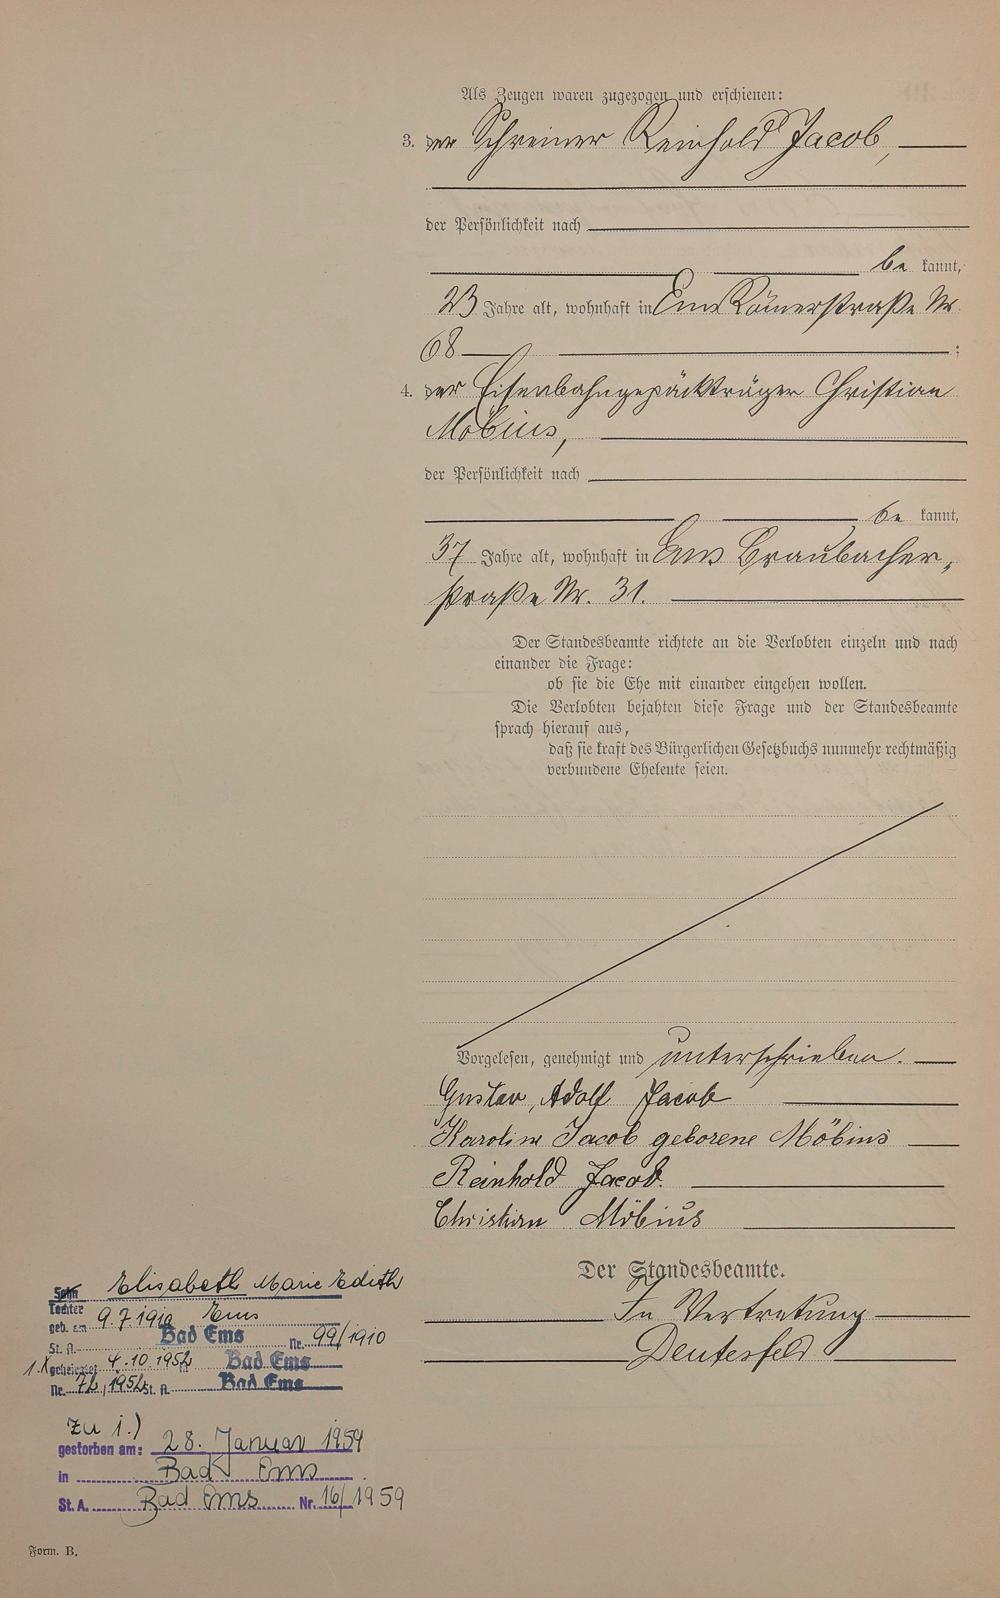 Als Zeugen waren zugezogen und erschienen:
3. der Schreiner Reinhold Jacob,
der Persönlichkeit nach
be kannt,
23 Jahre alt, wohnhaft in Ems Römerstraße Nr
68 ;
4. der Eisenbahngepäckträger Christian
Möbius,
der Persönlichkeit nach
be kannt,
37 Jahre alt, wohnhaft in Ems Braubacher-
straße Nr. 31.
Der Standesbeamte richtete an die Verlobten einzeln und nach
einander die Frage:
ob sie die Ehe mit einander eingehen wollen.
Die Verlobten bejahten diese Frage und der Standesbeamte
sprach hierauf aus,
daß sie kraft des Bürgerlichen Gesetzbuchs nunmehr rechtmäßig
verbundene Eheleute seien.
Vorgelesen, genehmigt und unterschrieben.
Gustav, Adolf Jacob
Karoline Jacob geborene Möbius
Reinhold Jacob.
Christian Möbius
Der Standesbeamte.
In Vertretung
Deutesfeld
Sohn Elisabeth Marie Edith
Tochter
geb. am 9.7.1910 Ems
St. A. Bad Ems Nr. 99/1910
1.X geheiratet 4.10.1952 in Bad Ems
Nr. 72, 1952 St. A. Bad Ems
zu 1.)
gestorben am: 28. Januar 1959
in Bad Ems
St. A. Bad Ems Nr. 16/1959
Form. B.